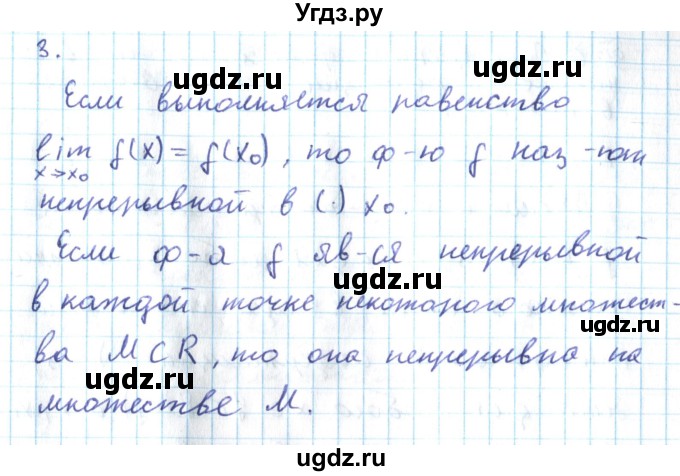 Угдз.ру
3.
ugdz.ru
Если выполняется равенство
ugdz.ru ugdz.ru
lim f(x) = f(x₀), то ф-ю f наз-ют
x→x₀
непрерывной в (·) x₀.
ugdz.ru
Если ф-я f яв-ся непрерывной
в каждой точке некоторого множест-
ugdz.ru
ва M⊂R, то она непрерывна на
ugdz.ru
множестве M.
ugdz.ru